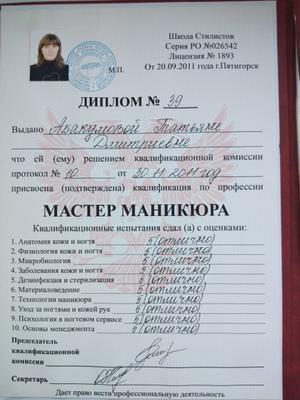 Школа Стилистов
Серия РО №026542
Лицензия № 1893
От 20.09.2011 года г.Пятигорск
М.П.
ДИПЛОМ № 39
Выдано Абакумовой Татьяне
Дмитриевне
что ей (ему) решением квалификационной комиссии
протокол № 10 от 30.11.2011 год
присвоена (подтверждена) квалификация по профессии
МАСТЕР МАНИКЮРА
Квалификационные испытания сдал (а) с оценками:
1. Анатомия кожи и ногтя 5 (отлично)
2. Физиология кожи и ногтя 5 (отлично)
3. Микробиология 5 (отлично)
4. Заболевания кожи и ногтя 5 (отлично)
5. Дезинфекция и стерилизация 5 (отлично)
6. Материаловедение 5 (отлично)
7. Технологии маникюра 5 (отлично)
8. Уход за ногтями и кожей рук 5 (отлично)
9. Психология в ногтевом сервисе 5 (отлично)
10. Основы менеджмента 5 (отлично)
Председатель
квалификационной
комиссии
Секретарь
Дает право вести профессиональную деятельность